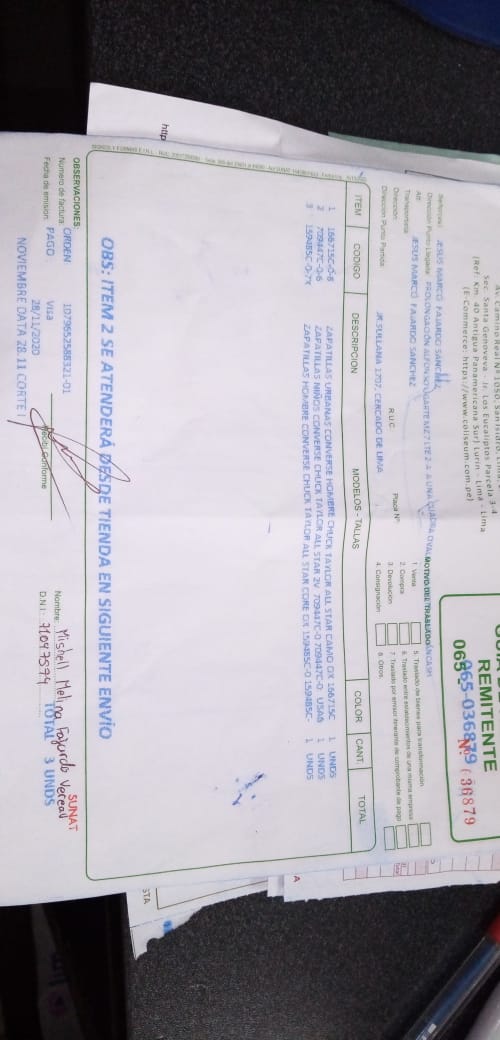 Av. Camino Real N° 1050, San Isidro, Lima
Sec. Santa Genoveva - Jr. Los Eucaliptos Parcela 3-4
(Ref: Km. 40 Antigua Panamericana Sur) Lurín - Lima - Lima
(E-Commerce: https://www.coliseum.com.pe)
REMITENTE
065-
065-036879
Nº 036879
Señor(es): JESUS MARCO FAJARDO SANCHEZ
Dirección Punto Llegada: PROLONGACIÓN ALFONSO UGARTE MZ 7 LTE 2 A UNA CUADRA OVAL
Att:
Transportista: JESUS MARCO FAJARDO SANCHEZ
Dirección:
R.U.C.
Placa Nº:
Dirección Punto Partida: JR SULLANA 1707, CERCADO DE LIMA
MOTIVO DEL TRASLADO
1. Venta
2. Compra
3. Devolución
4. Consignación
5. Traslado de bienes para transformación
6. Traslado entre establecimientos de una misma empresa
7. Traslado por emisor itinerante de comprobante de pago
8. Otros
ITEM CODIGO DESCRIPCION MODELOS - TALLAS COLOR CANT. TOTAL
1 166715C-0-8 ZAPATILLAS URBANAS CONVERSE HOMBRE CHUCK TAYLOR ALL STAR CAMO OX 166715C 1 UNDS
2 709447C-0-6 ZAPATILLAS NIÑOS CONVERSE CHUCK TAYLOR ALL STAR 2V 709447C-0 709447C-0 USA6 1 UNDS
3 159485C-0-7X ZAPATILLAS HOMBRE CONVERSE CHUCK TAYLOR ALL STAR CORE OX 159485C-0 159485C- 1 UNDS
OBS: ITEM 2 SE ATENDERÁ DESDE TIENDA EN SIGUIENTE ENVÍO
OBSERVACIONES:
Numero de factura: ORDEN 1079652588321-01
Fecha de emision: PAGO Visa
28/11/2020
NOVIEMBRE DATA 28.11 CORTE I
Recibí Conforme
Nombre: Mishell Melina Fajardo Vereau
D.N.I.: 71097594
SUNAT
TOTAL 3 UNDS
http
STA
A